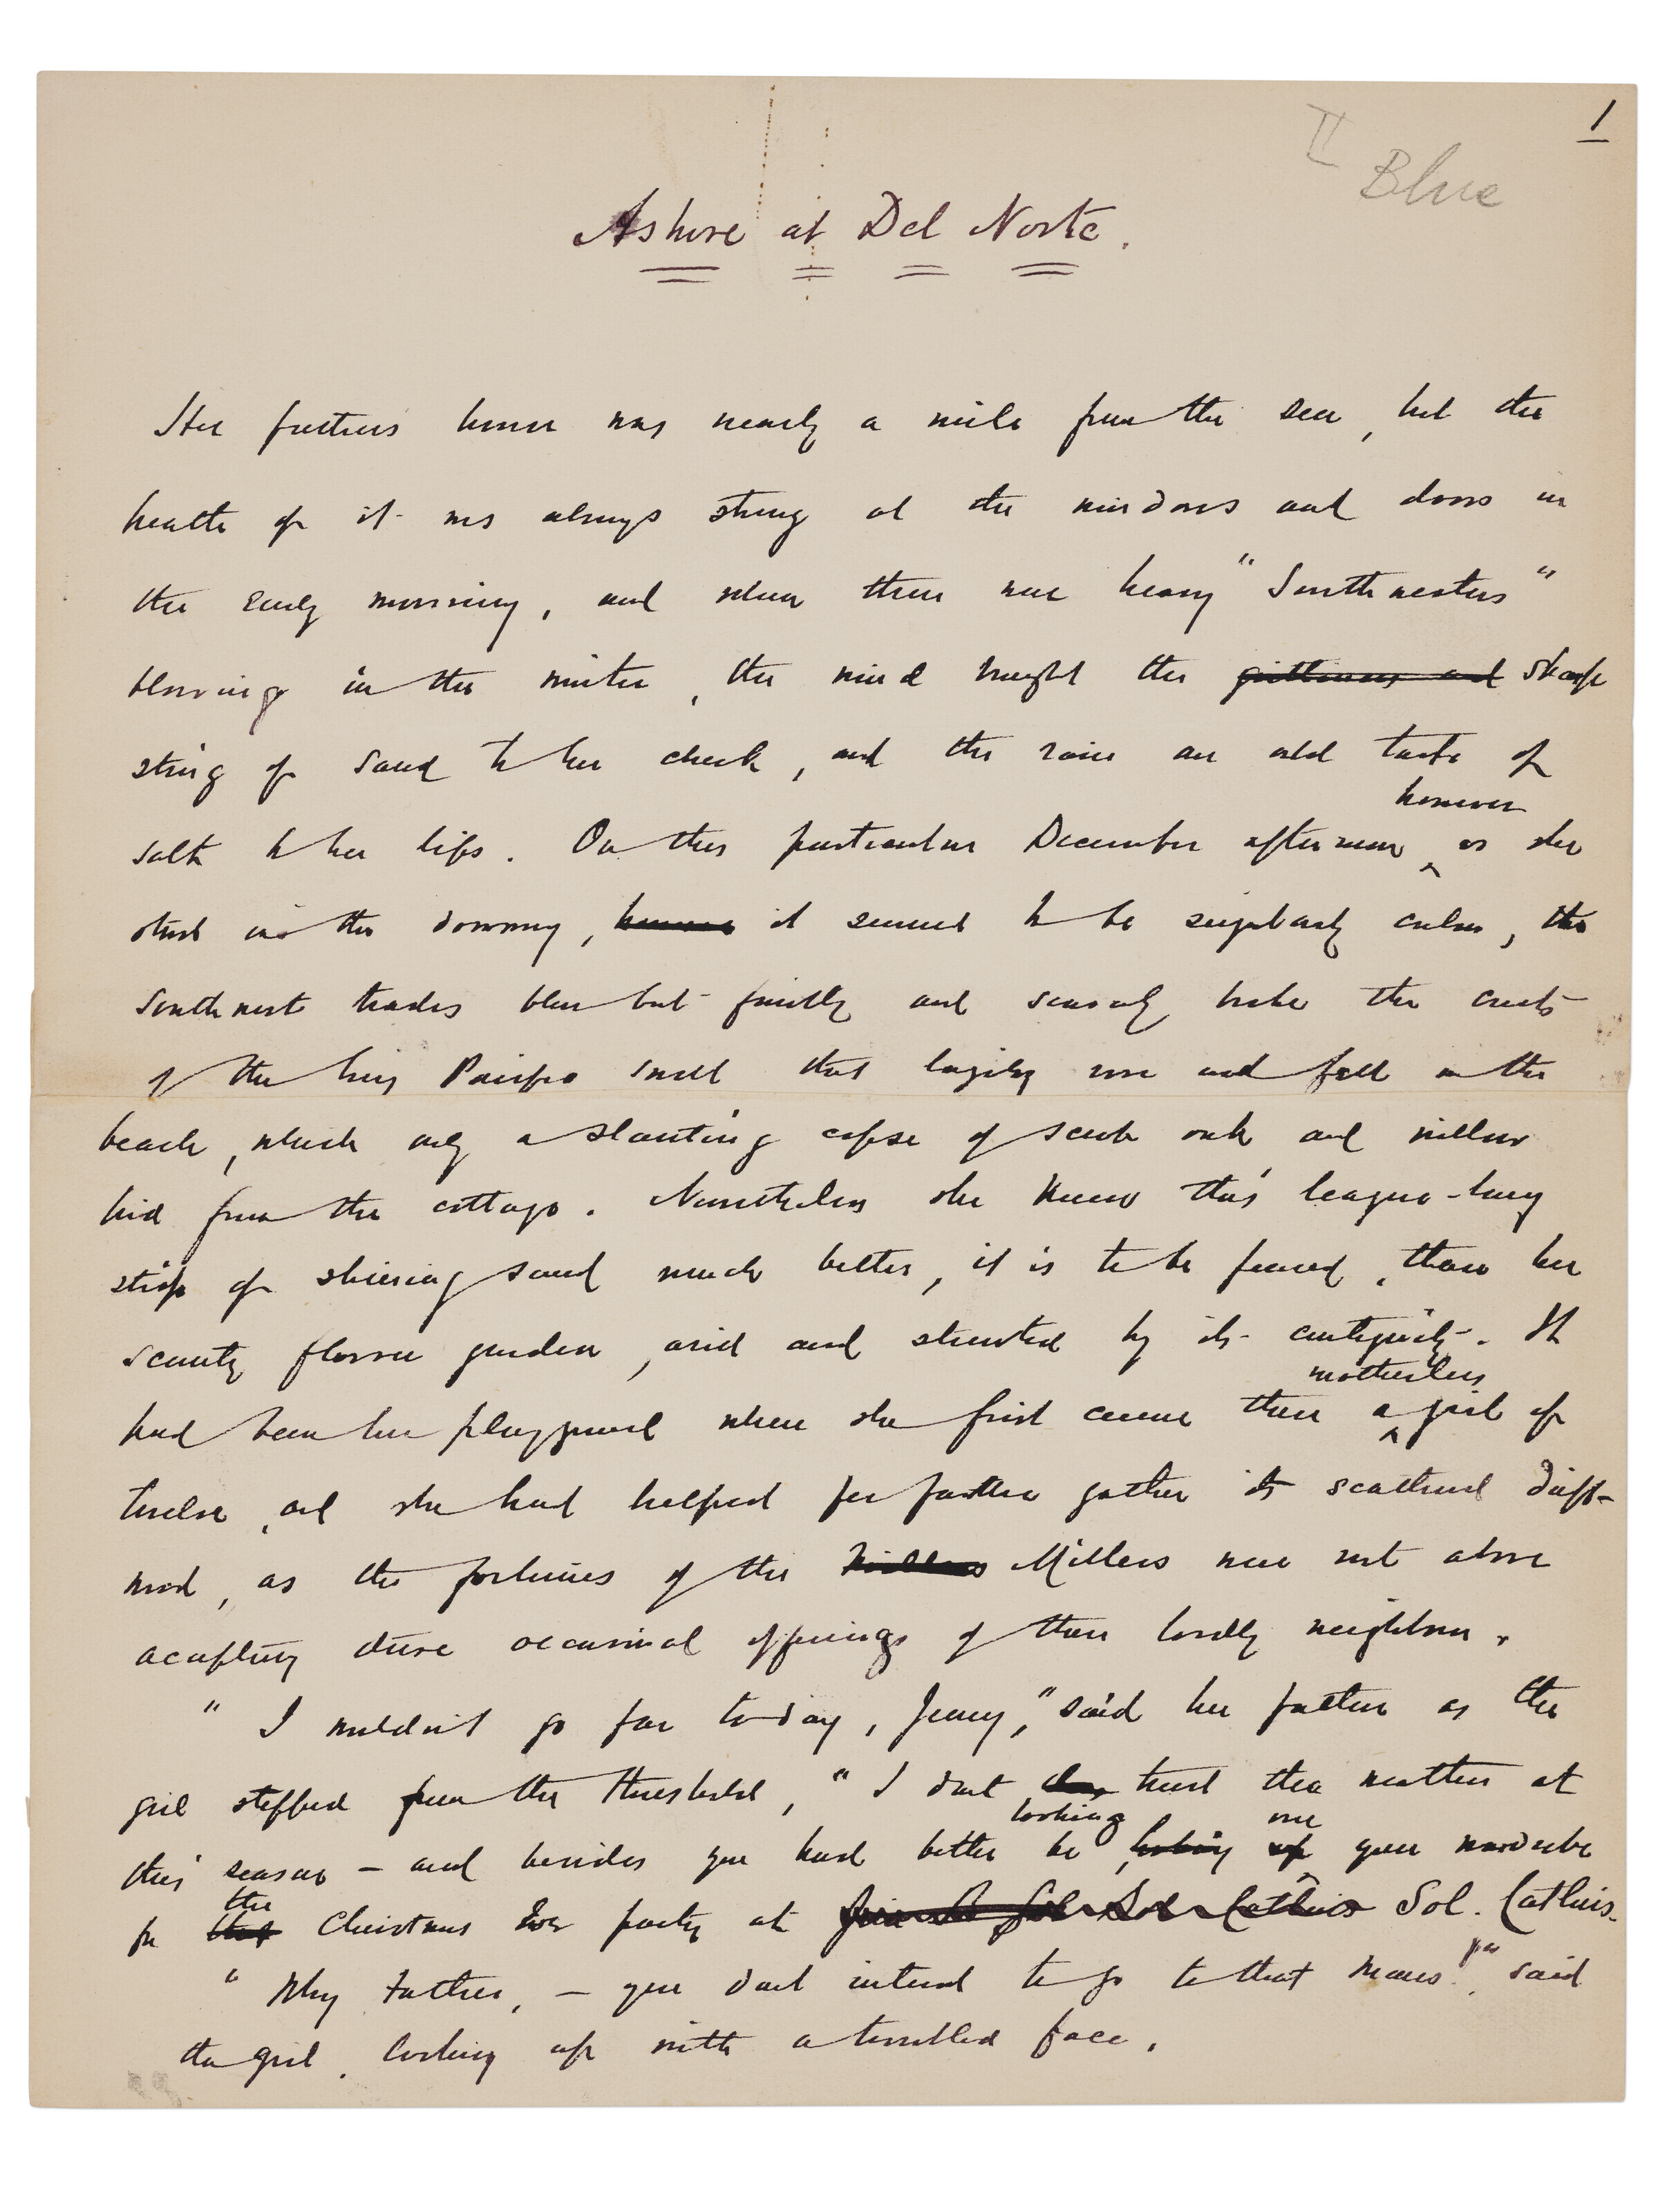 1
II
Blue
Ashore at Del Norte.
Her father's house was nearly a mile from the sea, but the
breath of it was always strong at the windows and doors in
the early morning, and when there were heavy "Southwesters"
blowing in the winter, the wind brought the sharp
sting of sand to her cheek, and the rain an odd taste of
however
salt to her lips. On this particular December afternoon ^ as she
stood in the doorway, it seemed to be singularly calm, the
Southwest trades blew but faintly and scarcely broke the crests
of the long Pacific swell that lazily rose and fell on the
beach, which only a slanting copse of scrub oak and willow
hid from the cottage. Nonetheless she knew this league-long
strip of shining sand much better, it is to be feared, than her
scanty flower garden, arid and stunted by its contiguity. It
motherless
had been her playground when she first came there a ^ girl of
twelve, and she had helped her father gather its scattered drift-
wood, as the fortunes of the Millers were not above
accepting these occasional offerings of their lordly neighbor.
"I wouldn't go far today, Jenny," said her father as the
girl stepped from the threshold, "I don't trust the weather at
looking over
this season – and besides you had better be your wardrobe
the
for Christmas Eve party at Sol. Catlin's.
"Why Father, – you don't intend to go to that man's?" said
the girl, looking up with a troubled face.